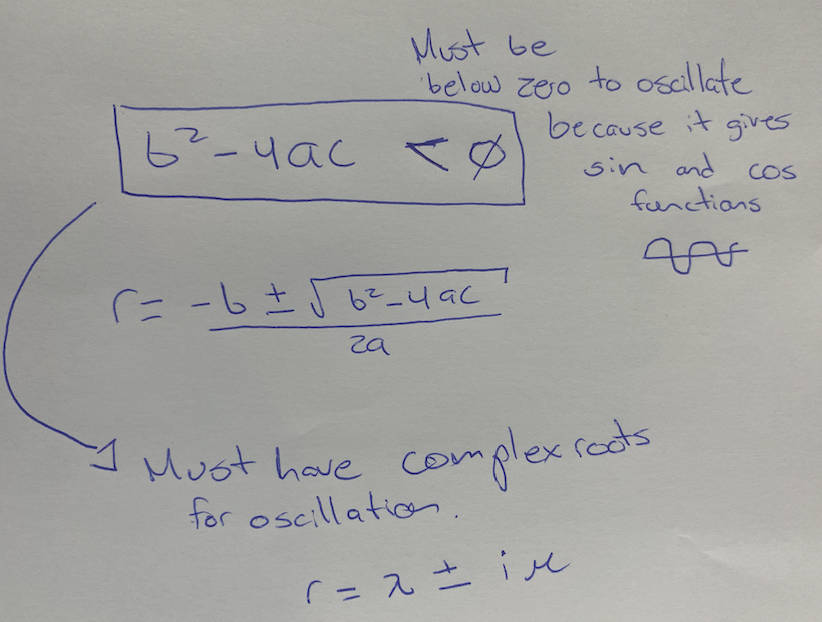 Must be
below zero to oscillate
because it gives
sin and cos
functions
b² - 4ac < 0
r = -b ± √b² - 4ac
2a
Must have complex roots
for oscillation.
r = λ ± iμ